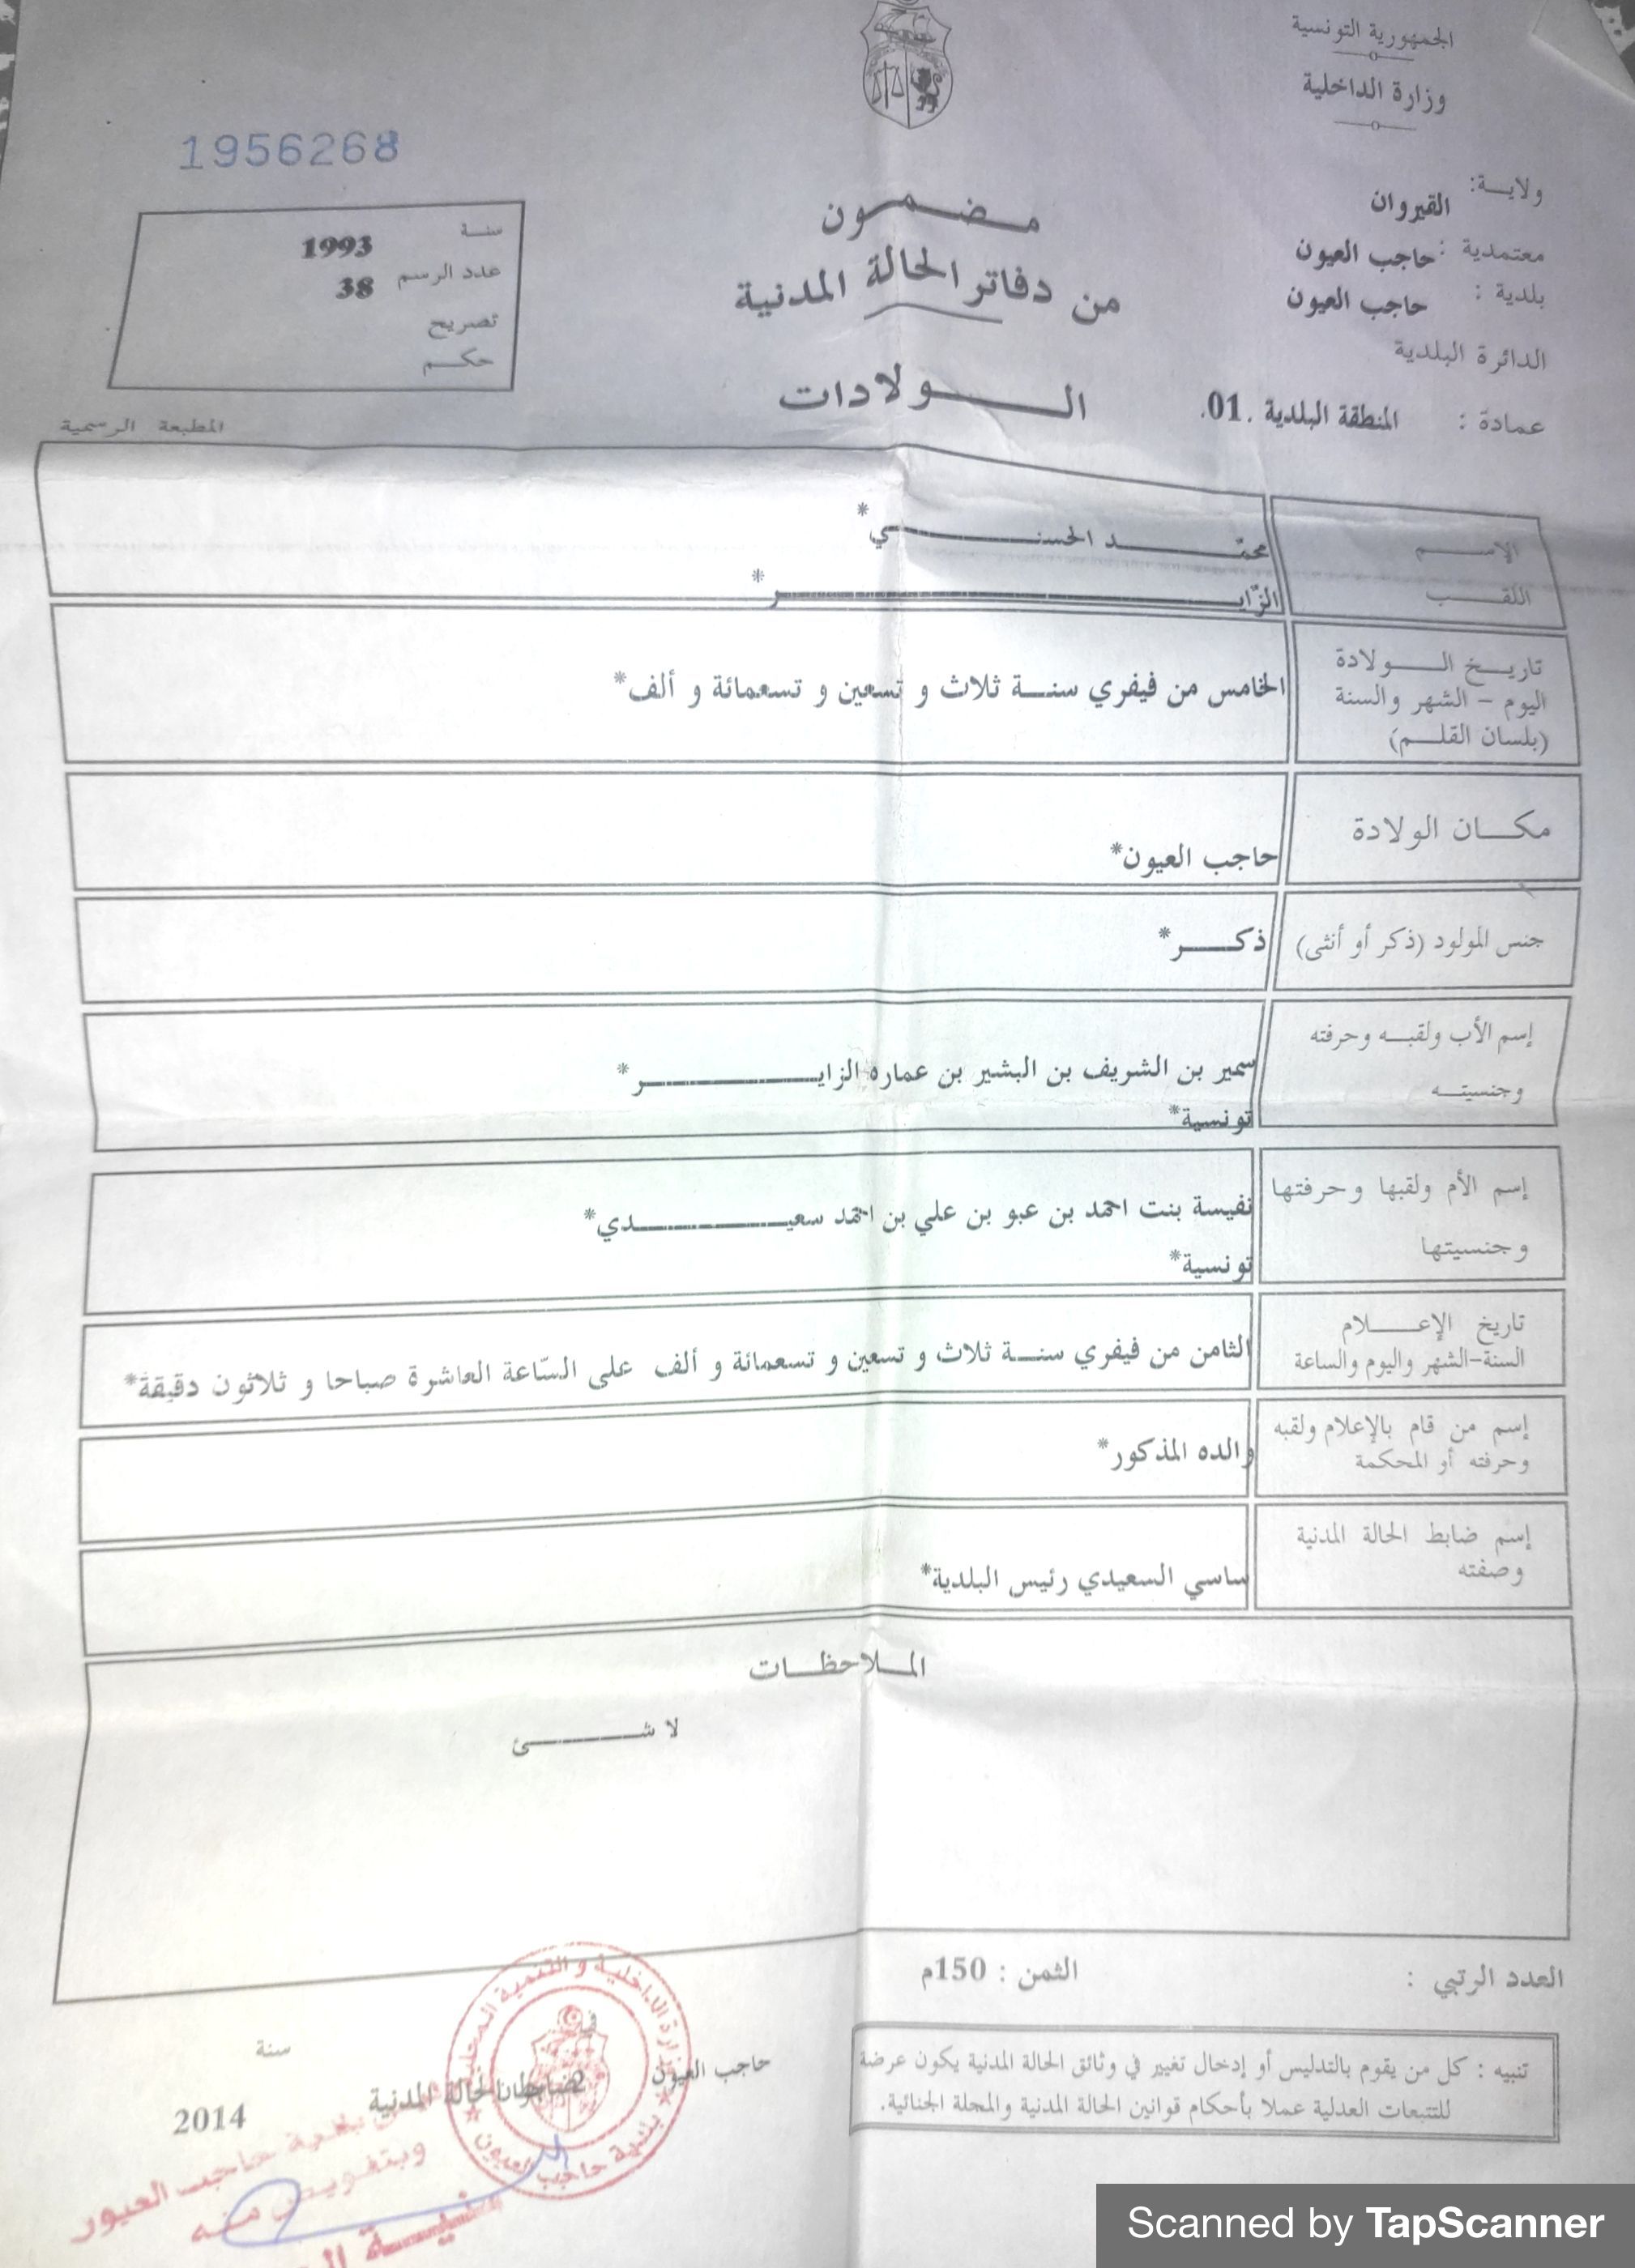 الجمهورية التونسية
وزارة الداخلية
1956268
ولايـــة: القيروان
معتمدية : حاجب العيون
بلدية : حاجب العيون
الدائرة البلدية
عمادة : المنطقة البلدية .01.
مـضـمـون
من دفاتر الحالة المدنية
الـــولادات
سنــة 1993
عدد الرسم 38
تصريح
حكــم
المطبعة الرسمية
الإســـم محمّـــد الحسنـــي*
اللقـــب الزّايـــر*
تاريــخ الـــولادة
اليوم - الشهر والسنة
(بلسان القلــم)
الخامس من فيفري سنــة ثلاث و تسعين و تسعمائة و ألف*
مكـــان الولادة
حاجب العيون*
جنس المولود (ذكر أو أنثى) ذكـــر*
إسم الأب ولقبــه وحرفته
وجنسيتــه
سمير بن الشريف بن البشير بن عماره الزايـــر*
تونسية*
إسم الأم ولقبها وحرفتها
وجنسيتها
نفيسة بنت احمد بن عبو بن علي بن احمد سعيـــدي*
تونسية*
تاريخ الإعـــلام
السنة-الشهر واليوم والساعة
الثامن من فيفري سنــة ثلاث و تسعين و تسعمائة و ألف على السّاعة العاشرة صباحا و ثلاثون دقيقة*
إسم من قام بالإعلام ولقبه
وحرفته أو المحكمة
والده المذكور*
إسم ضابط الحالة المدنية
وصفته
ساسي السعيدي رئيس البلدية*
المــلاحظــات
لا شـــئ
العدد الرتبي :
الثمن : 150م
تنبيه : كل من يقوم بالتدليس أو إدخال تغيير في وثائق الحالة المدنية يكون عرضة
للتتبعات العدلية عملا بأحكام قوانين الحالة المدنية والمجلة الجنائية.
حاجب العيون
في
سنة
2014
ضابط الحالة المدنية
وزارة الداخلية و التنمية المحلية
بلدية حاجب العيون
بلدية حاجب العيون
وبتفويض منه
Scanned by TapScanner